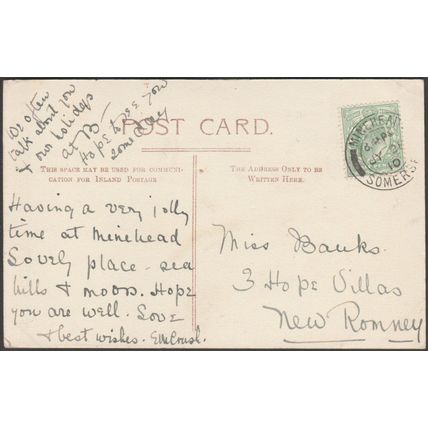 We often
talk about you
& our holidays
at B—
Hope to see you
some day
POST CARD.
THIS SPACE MAY BE USED FOR COMMUNI-
CATION FOR INLAND POSTAGE
THE ADDRESS ONLY TO BE
WRITTEN HERE.
MINEHEAD
SOMERSET
10
Having a very jolly
time at Minehead
Lovely place - sea
hills & moor. Hope
you are well. Love
& best wishes.
Miss Banks.
3 Hope Villas
New Romney